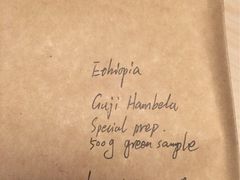 Ethiopia
Guji Hambela
Special prep.
500g green sample